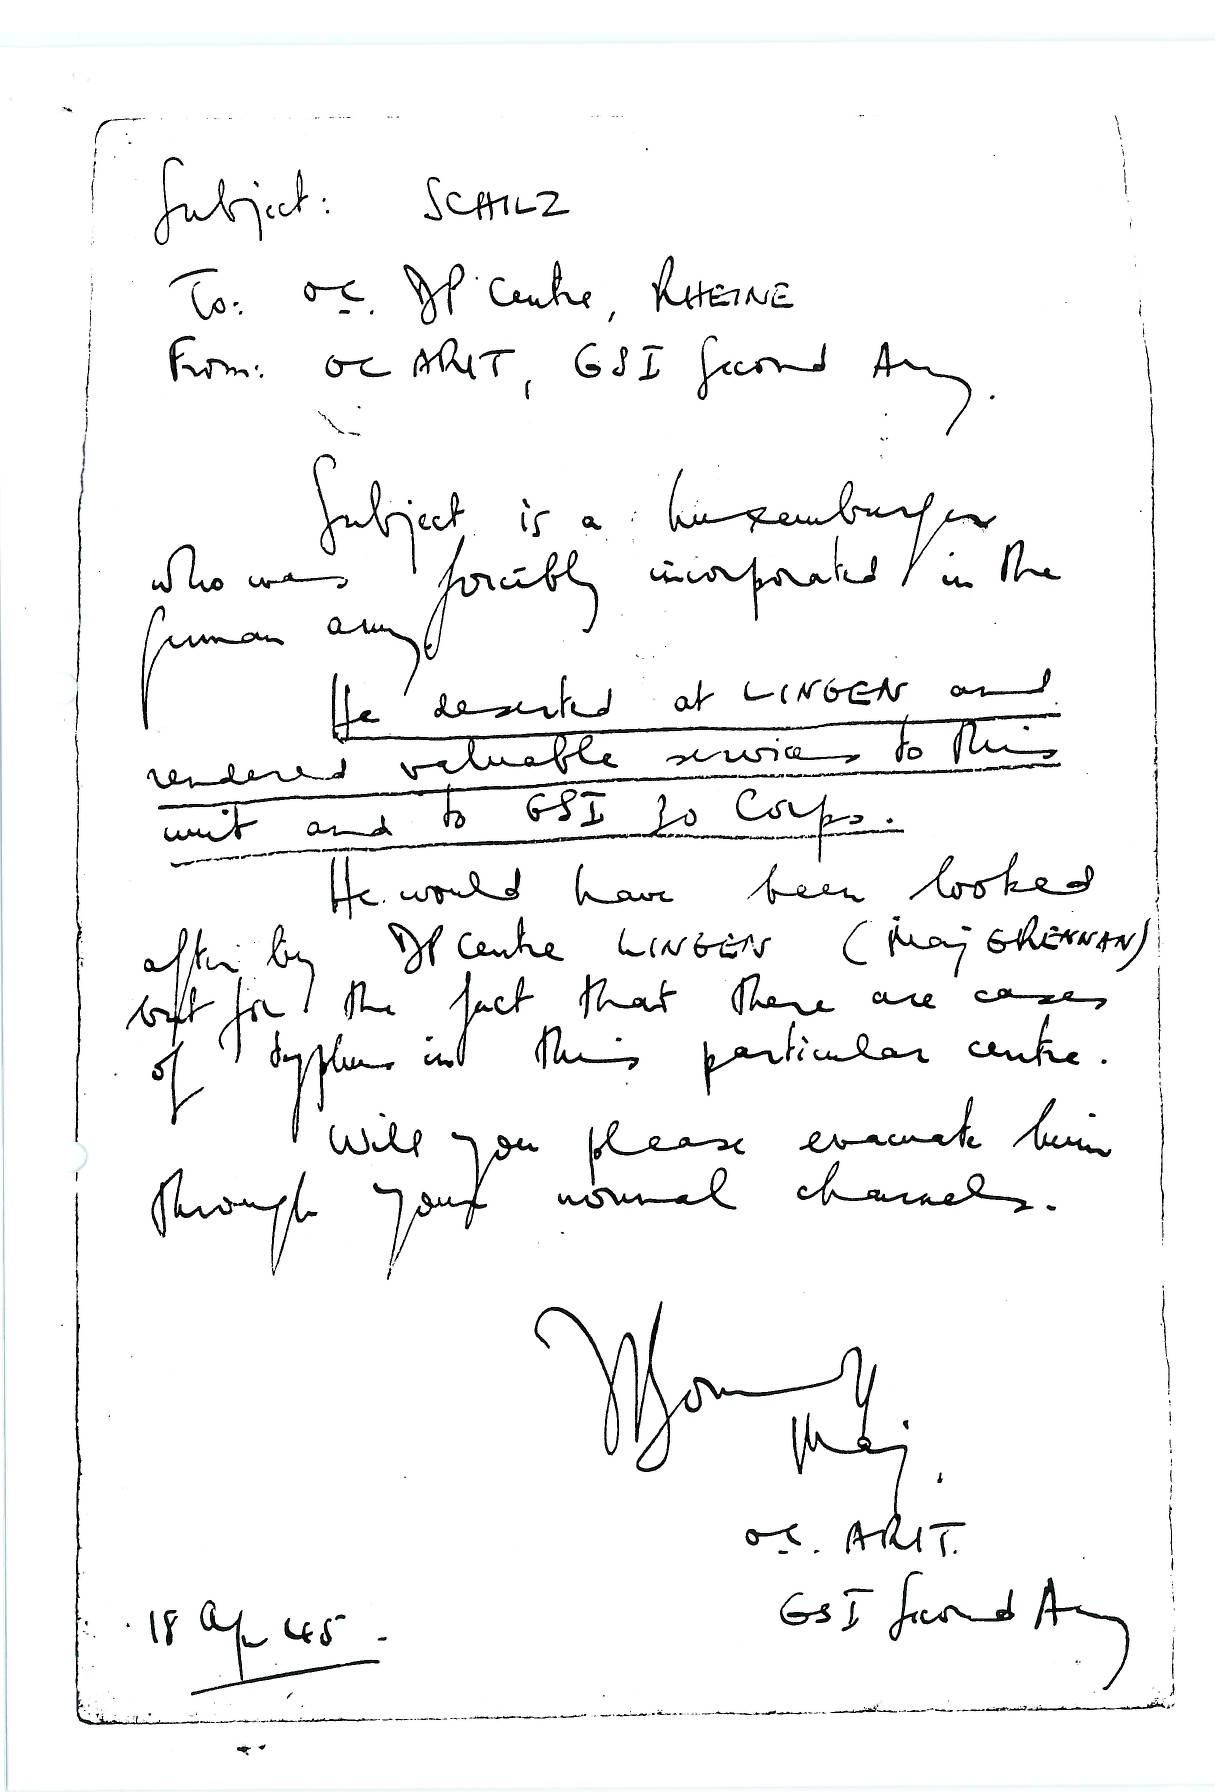 Subject: SCHILZ
To: OC. DP Centre, RHEINE
From: OC ARIT, GSI Second Army.
Subject is a Luxemburger
who was forcibly incorporated in the
german army.
He deserted at LINGEN and
rendered valuable services to this
unit and to GSI 30 Corps.
He would have been looked
after by DP Centre LINGEN (Maj GRENNAN)
but for the fact that there are cases
of typhus in this particular centre.
Will you please evacuate him
through your normal channels.
Maj.
OC. ARIT.
GSI Second Army
18 Apr 45.